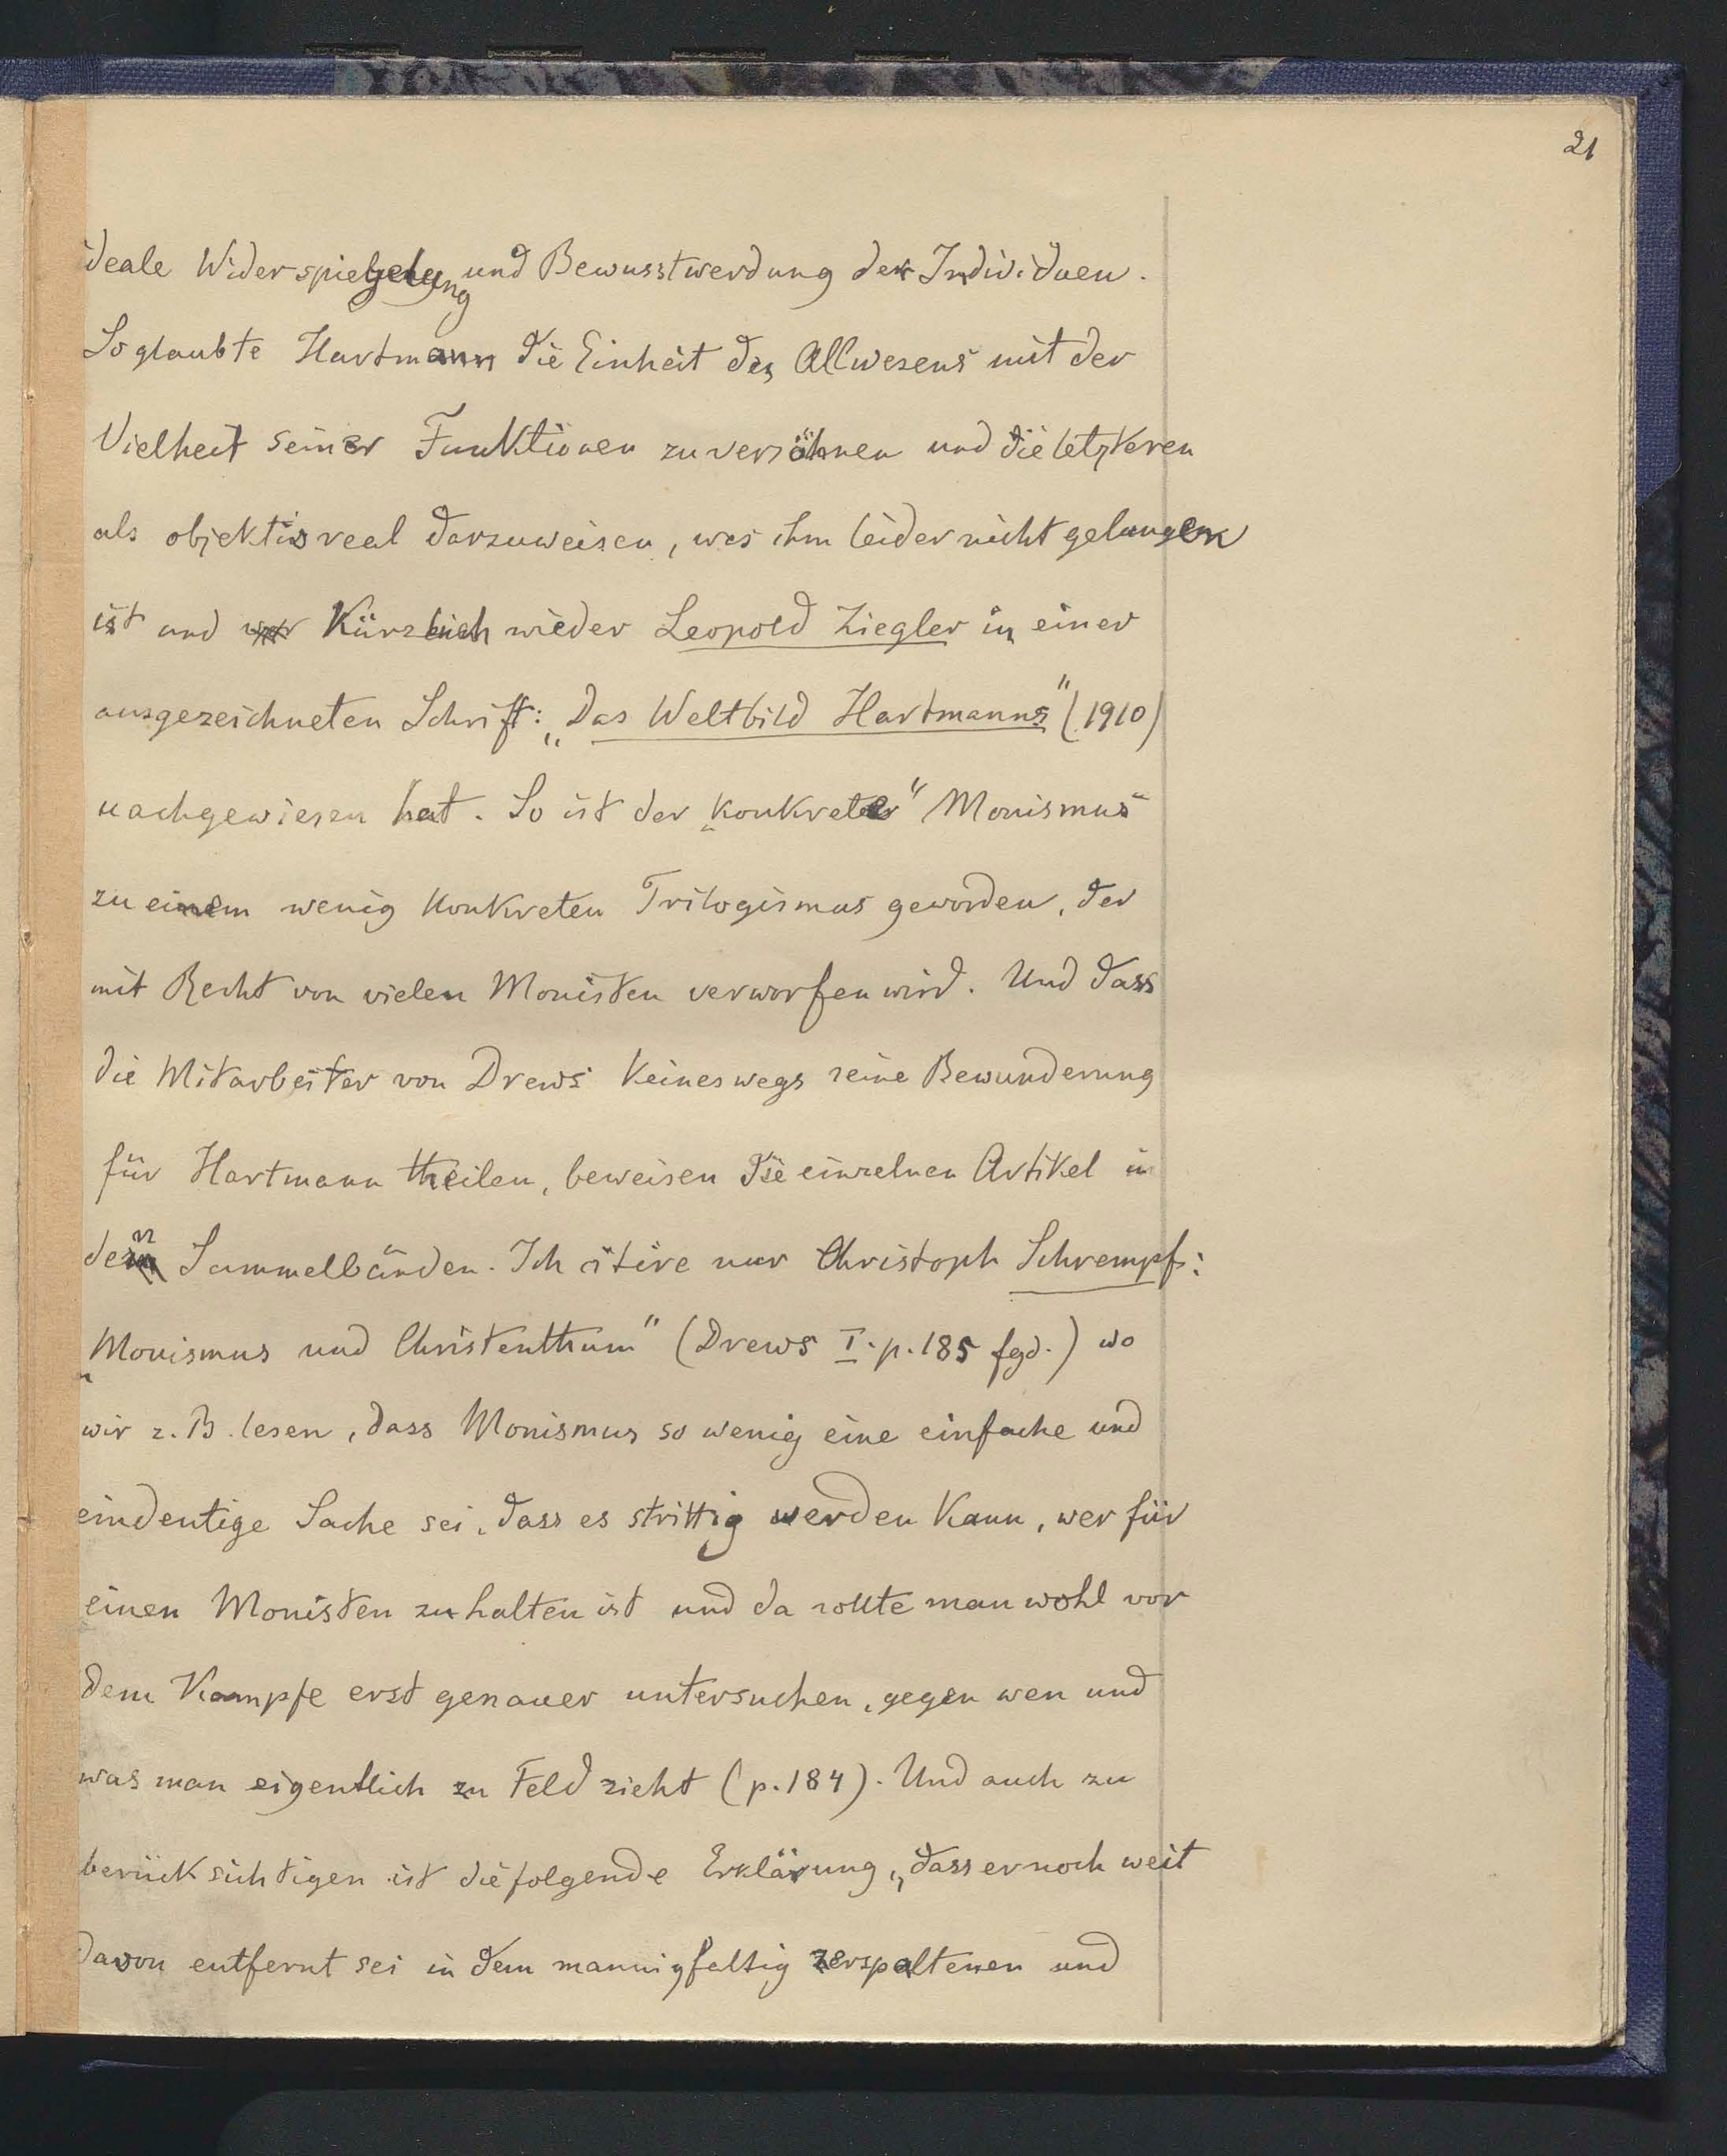 21
ideale Widerspiegelung und Bewusstwerdung der Individuen.
So glaubte Hartmann die Einheit des Allwesens mit der
Vielheit seiner Funktionen zu versöhnen und die letzteren
als objektiv real darzuweisen, was ihm leider nicht gelungen
ist und kürzlich wieder Leopold Ziegler in einer
ausgezeichneten Schrift: „Das Weltbild Hartmanns" (1910)
nachgewiesen hat. So ist der „konkrete" Monismus
zu einem wenig konkreten Trilogismus geworden, der
mit Recht von vielen Monisten verworfen wird. Und dass
die Mitarbeiter von Drews keineswegs seine Bewunderung
für Hartmann theilen, beweisen die einzelnen Artikel in
den Sammelbänden. Ich zitire nur Christoph Schrempf:
„Monismus und Christenthum" (Drews I. p. 185 fgd.) wo
wir z. B. lesen, dass Monismus so wenig eine einfache und
eindeutige Sache sei, dass es strittig werden kann, wer für
einen Monisten zu halten ist und da sollte man wohl vor
dem Kampfe erst genauer untersuchen, gegen wen und
was man eigentlich zu Feld zieht (p. 184). Und auch zu
berücksichtigen ist die folgende Erklärung, „dass er noch weit
davon entfernt sei in dem mannigfaltig zerspaltenen und